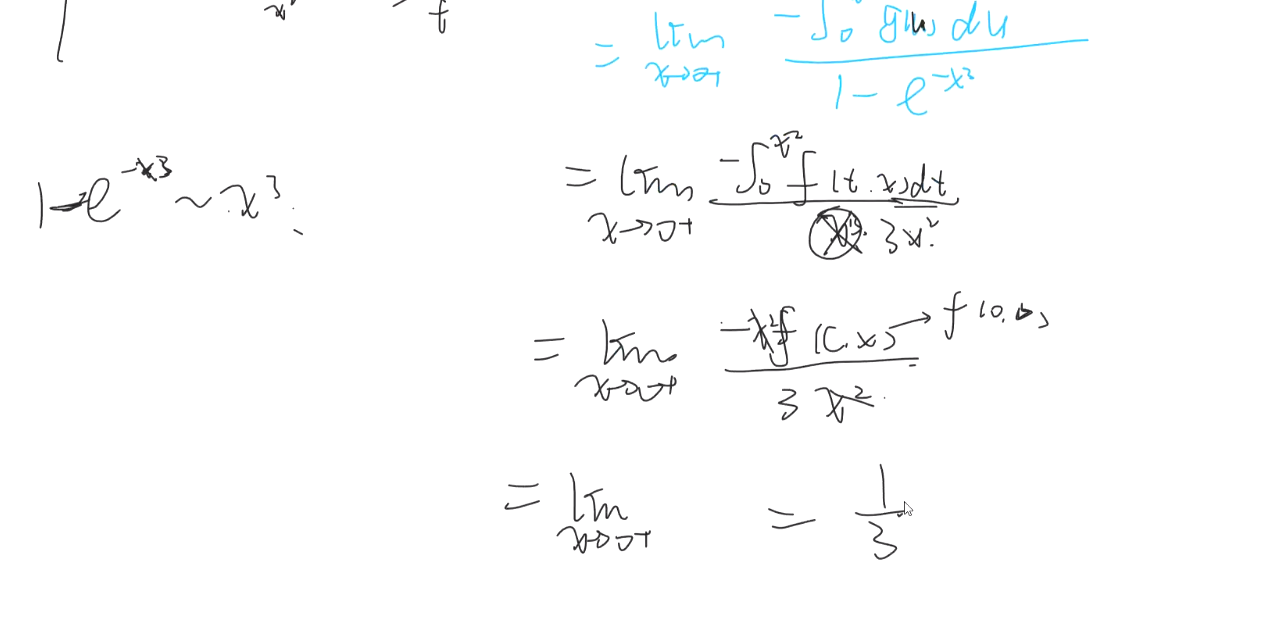 = lim x→0+ -∫₀ g(u) du / 1 - e^{-x³}
1-e^{-x³} ~ x³.
= lim x→0+ -∫₀^{x²} f(t.x)dt / 3x²
= lim x→0+ -x²f(C.x) / 3x² → f(0.0)
= lim x→0+ = 1/3